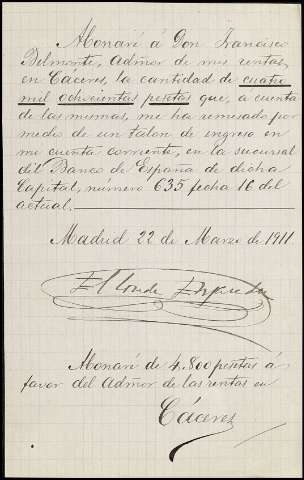 Abonaré á Don Francisco
Belmonte, Admor de mis rentas
en Cáceres, la cantidad de cuatro
mil ochocientas pesetas que, a cuenta
de las mismas, me ha remesado por
medio de un talon de ingreso en
mi cuenta corriente, en la sucursal
del Banco de España de dicha
Capital, número 635 fecha 16 del
actual.
Madrid 22 de Marzo de 1911
El Conde
Abonaré de 4.800 pesetas á
favor del Admor de las rentas en
Cáceres